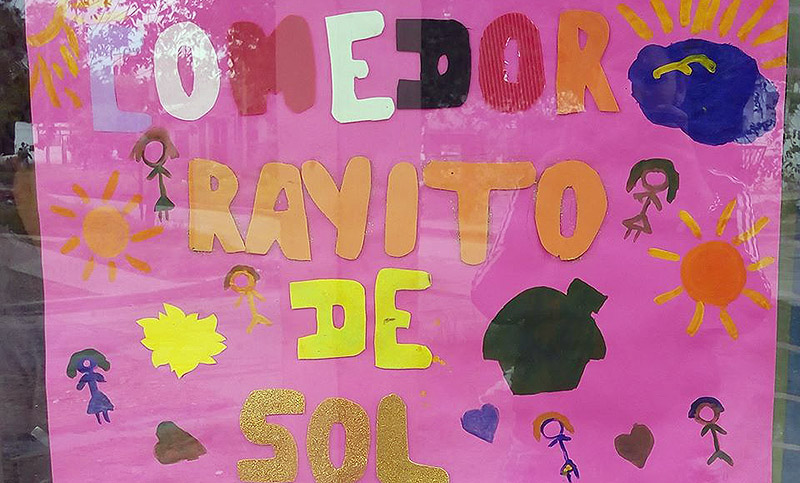 COMEDOR
RAYITO
DE
SOL